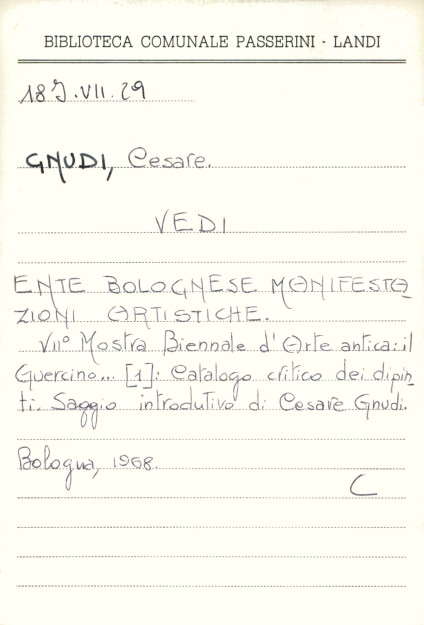 BIBLIOTECA COMUNALE PASSERINI - LANDI
18 J.VII.29
GNUDI, Cesare.
VEDI
ENTE BOLOGNESE MANIFESTA-
ZIONI ARTISTICHE.
VII° Mostra Biennale d'Arte antica: il
Guercino... [1]: Catalogo critico dei dipin-
ti. Saggio introdutivo di Cesare Gnudi.
Bologna, 1968.
C